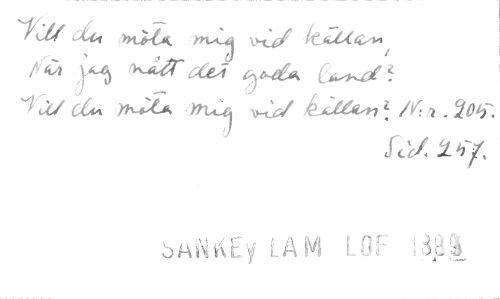 Vill du möta mig vid källan,
När jag nått det goda land?
Vill du möta mig vid källan? N:r. 205.
Sid. 257.
SANKEY LAM LOF 1889